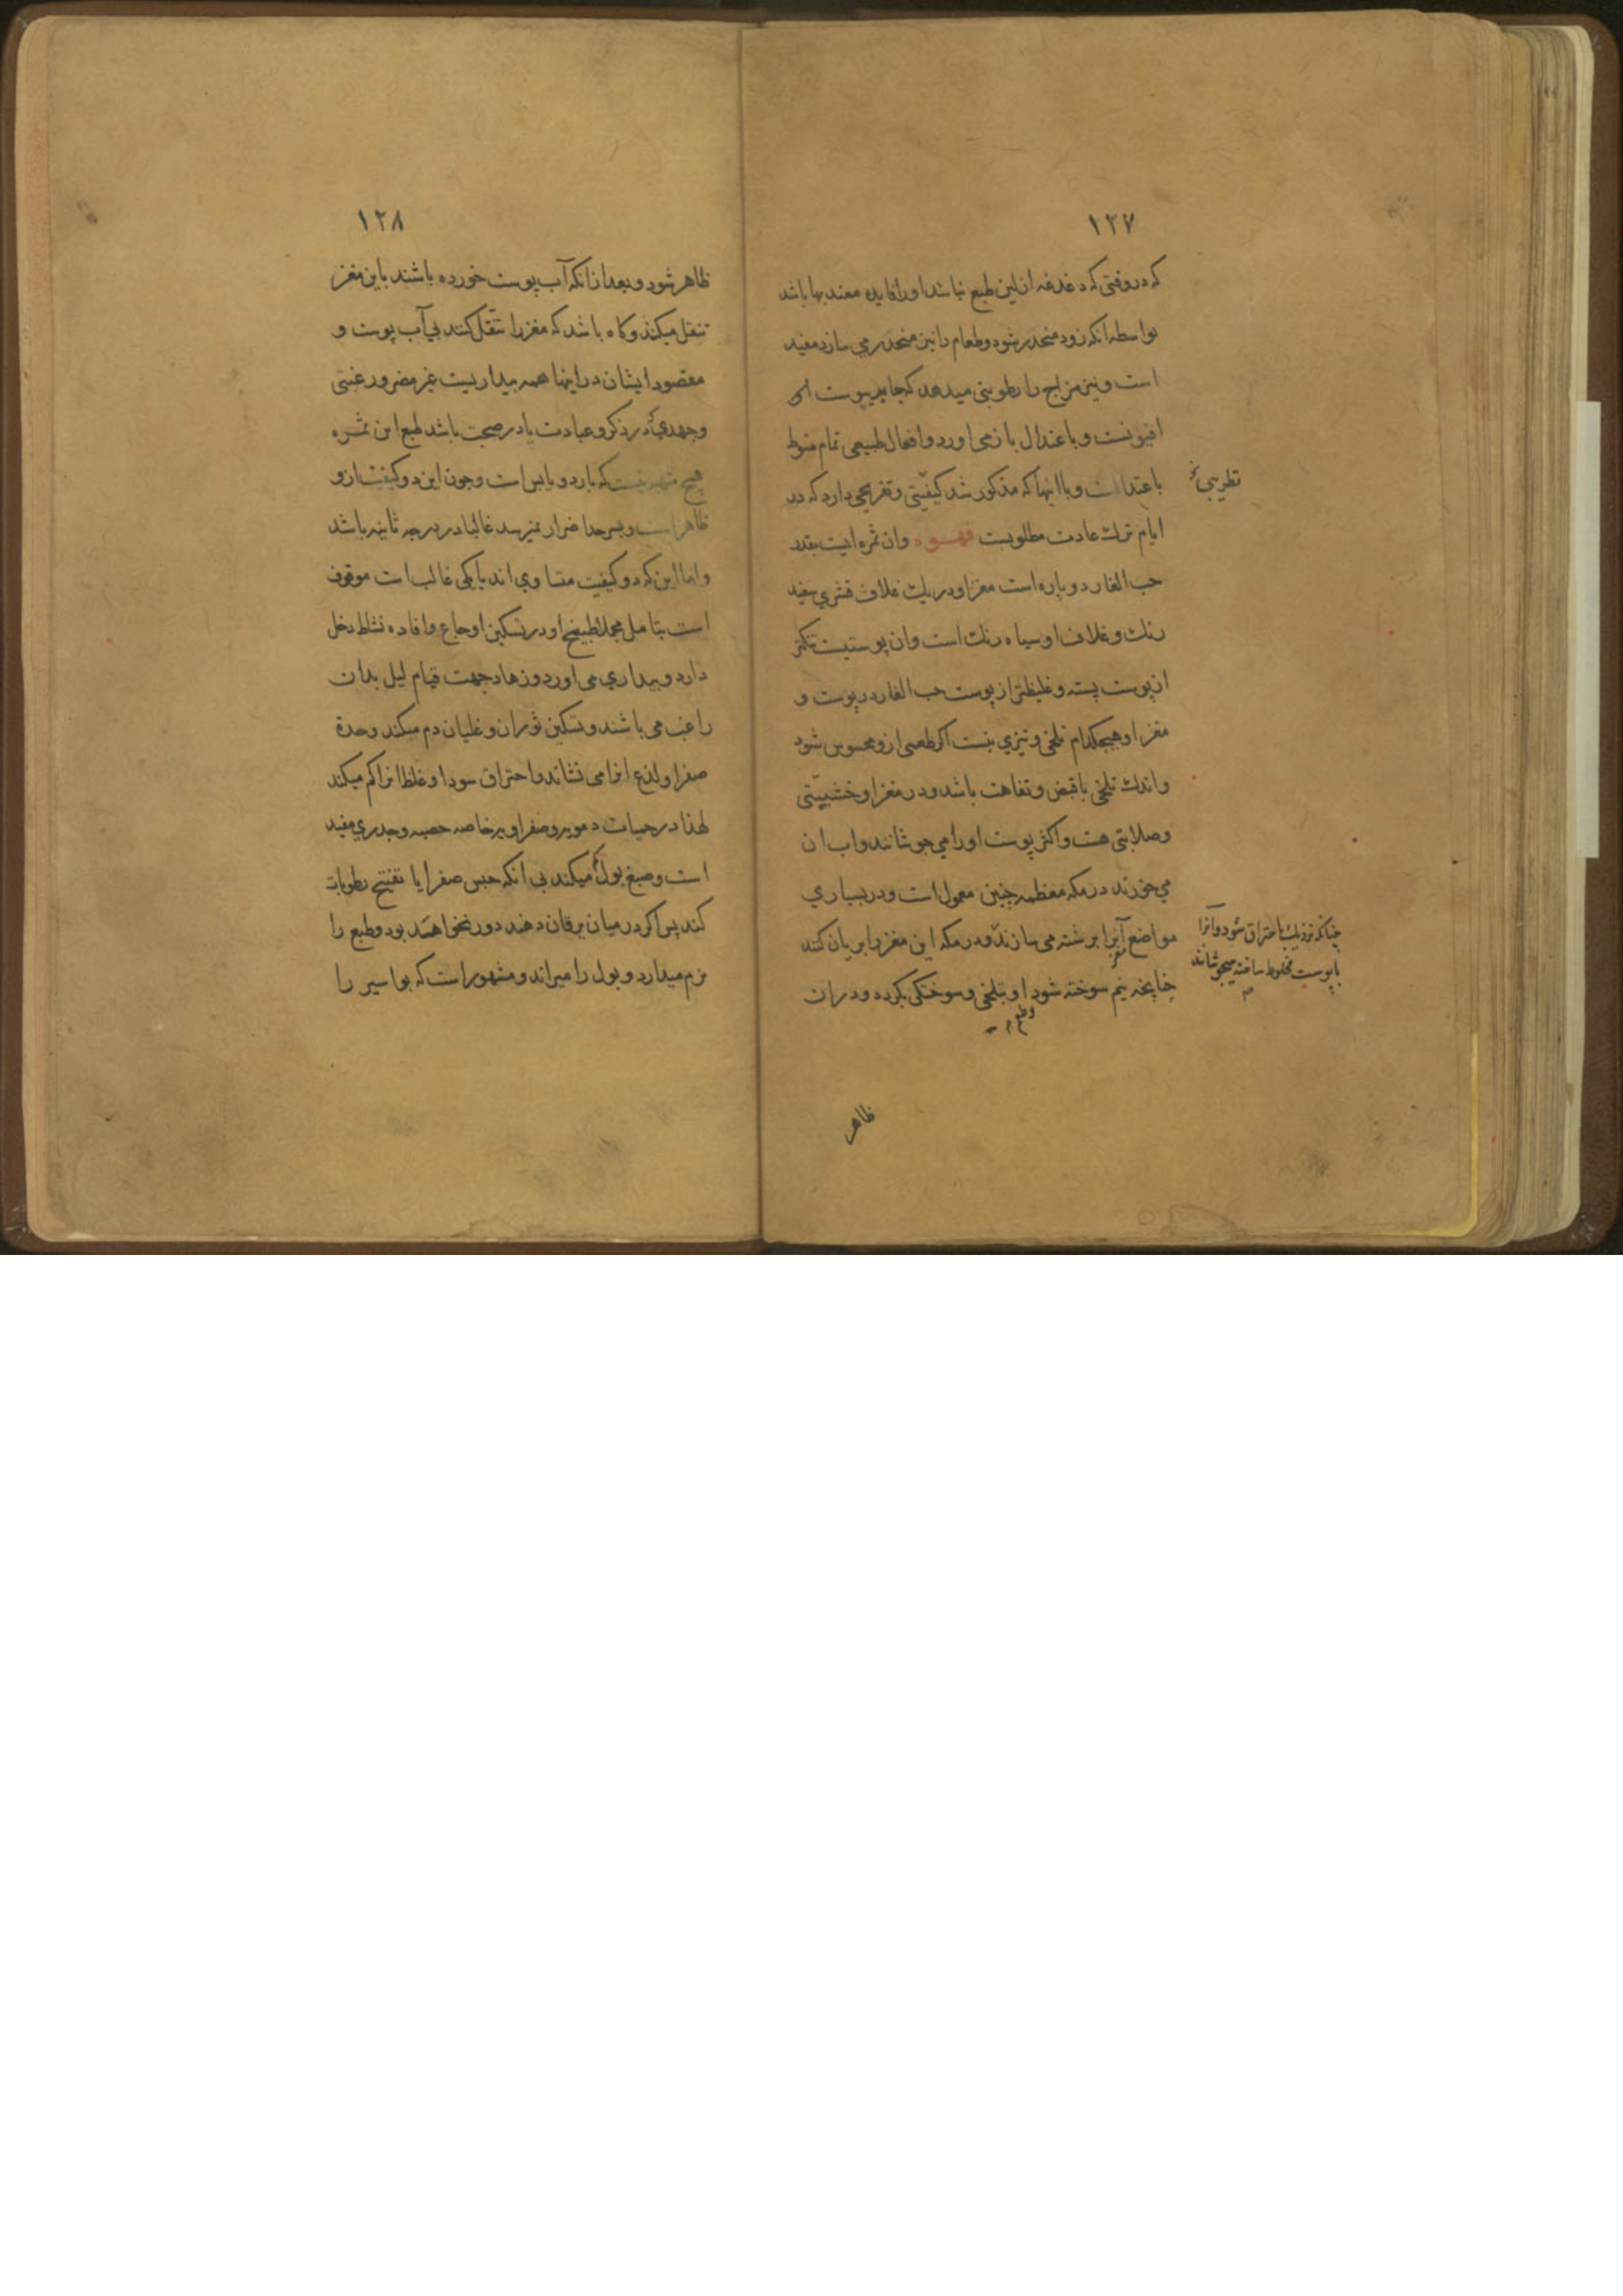 ۱۲۷
که در وقتی که دغدغه از لین طبع نباشد او را فایده معتد بها باشد
بواسطه انکه زود منحدر شود و طعام را نیز منحدر می سازد مفید
است و نیز مزاج را رطوبتی میدهد که جابر یبوست
افیونست و باعتدال باز می اورد و افعال طبیعی تمام منوط
باعتدال است و با اینها که مذکور شد کیفیتی و تفریحی دارد که در
ایام ترک عادت مطلوبست قهوه وان ثمره ایست بقدر
حب الغار دو پاره است مغز او در یک غلاف قشری سفید
رنک و غلاف او سیاه رنک است وان پوستیست تنکتر
از پوست پسته و غلیظتر از پوست حب الغار در پوست و
مغز او هیچکدام تلخی و تیزی نیست اکر طعمی ازو محسوس شود
واندک تلخی باقبض و تفاهت باشد و در مغز او خشبیتی
وصلابتی هست و اکثر پوست اورا می جوشانند واب ان
می خورند در مکه معظمه چنین معمول است و در بسیاری
مواضع آنرا برشته می سازند و در مکه این مغز را بریان کنند
چنانچه نیم سوخته شود او بتلخی و سوختکی بکردد و دران
ظاهر
تطریبی
چنانکه نزدیک باحتراق شود وآنرا
با پوست مخلوط ساخته میجوشانند
۱۲۸
ظاهر شود و بعد ازانکه آب پوست خورده باشند باین مغز
تنقل میکنند و کاه باشد که مغز را تنقل کنند بی آب پوست و
مقصود ایشان در اینها همه بیداریست غیر مضر و رغبتی
و جهدی در ذکر و عبادت یا در صحبت باشد طبع این ثمره
هیچ شبهه نیست که بارد و یابس است وچون این دو کیفیت ازو
ظاهر است و بسرحد اضرار نمیرسد غالبا در درجه ثانیه باشد
واما این که دو کیفیت متساوی اند یا یکی غالب است موقوف
است بتامل مجملا طبیخ او در تسکین اوجاع وافاده نشاط دخل
دارد و بیداری می اورد و زهاد جهت قیام لیل بدان
راغب می باشند و تسکین ثوران و غلیان دم میکند وحدة
صفرا و لذع انرا می نشاند واحتراق سودا و غلظ انرا کم میکند
لهذا در حمیات دمویه و صفراویه خاصه حصبه و جدری مفید
است و صبغ بول میکند بی انکه حبس صفرا یا تفتیح رطوبات
کند پس اکر در میان یرقان دهند دور نخواهند بود و طبع را
نرم میدارد و بول را میراند و مشهور است که بواسیر را